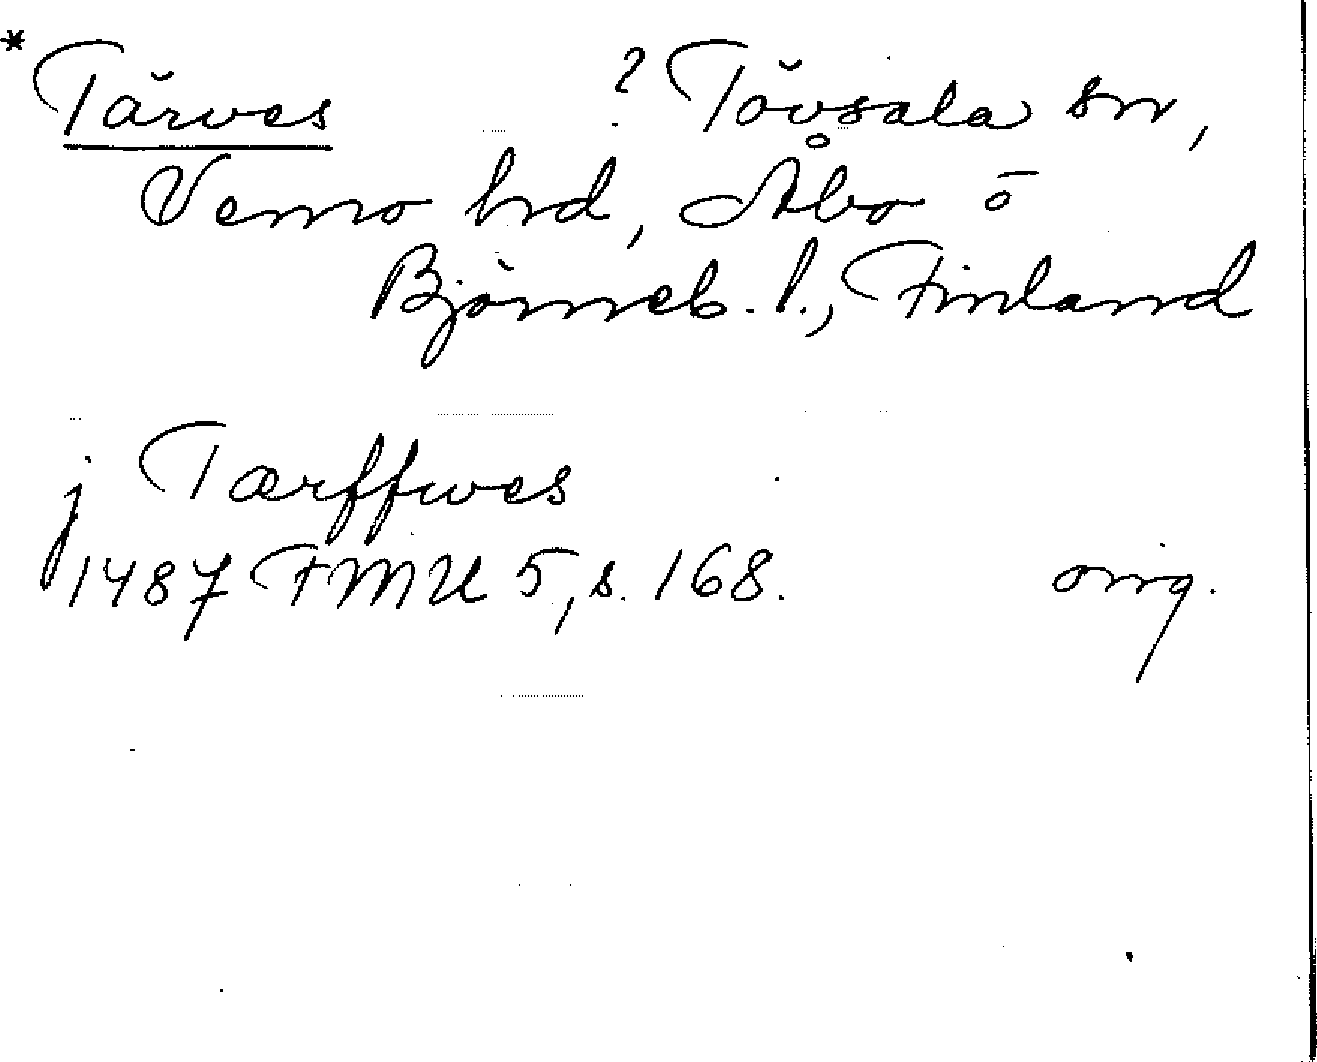 * Tärves ? Tövsala sn,
Vemo hrd, Åbo o
Björneb. l., Finland
j Tærffwes
1487 FMU 5, s. 168. orig.